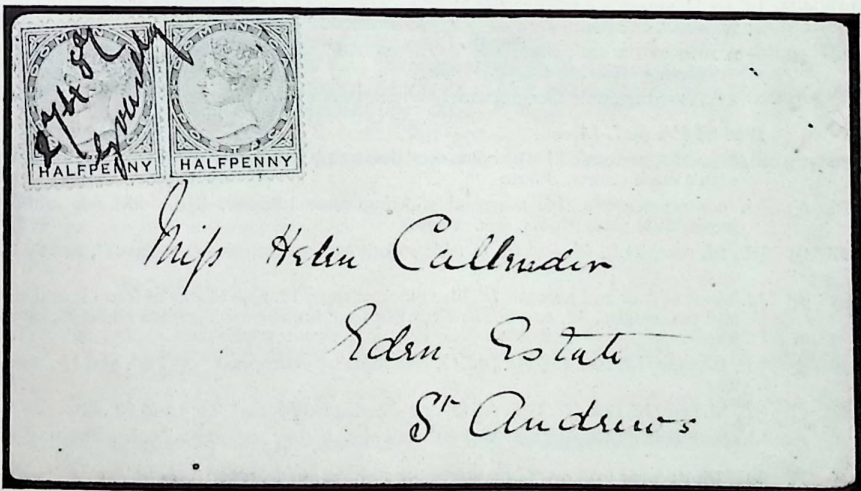 DOMINICA DOMINICA
HALFPENNY HALFPENNY
Miss Helen Callender
Eden Estate
St Andrews